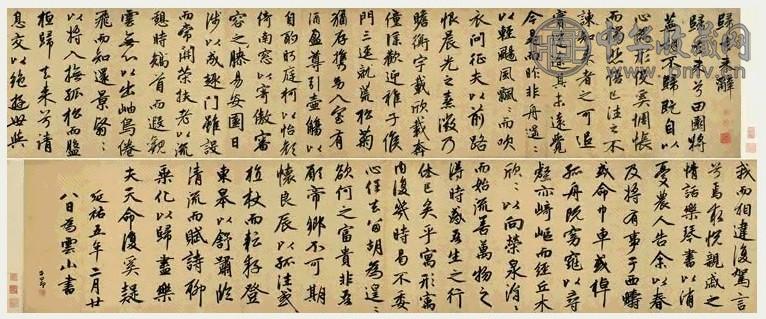 歸去来辭
歸去来兮田園將
蕪胡不歸既自以
心為形役奚惆悵
而獨悲悟已往之不
諫知来者之可追
實迷塗其未遠覺
今是而昨非舟遙〻
以輕颺風飄〻而吹
衣問征夫以前路
恨晨光之熹微乃
瞻衡宇載欣載奔
僮僕歡迎稚子候
門三逕就荒松菊
猶存攜幼入室有
酒盈尊引壺觴以
自酌眄庭柯以怡顏
倚南窓以寄傲審
容之膝易安園日
涉以成趣門雖設
而常關策扶老以流
憩時矯首而遐觀
雲無心以出岫鳥倦
飛而知還景翳〻
以將入撫孤松而盤
桓歸去来兮請
息交以絕遊世與
我而相違復駕言
兮焉求悅親戚之
情話樂琴書以消
憂農人告余以春
及將有事于西疇
或命巾車或棹
孤舟既窈窕以尋
壑亦崎嶇而經丘木
欣〻以向榮泉涓〻
而始流善萬物之
得時感吾生之行
休已矣乎寓形宇
内復幾時曷不委
心任去留胡為遑〻
欲何之富貴非吾
願帝鄉不可期
懷良辰以孤往或
植杖而耘耔登
東皋以舒嘯臨
清流而賦詩聊
乘化以歸盡樂
夫天命復奚疑
延祐五年二月廿
八日為雲山書
子昂
中华收藏网